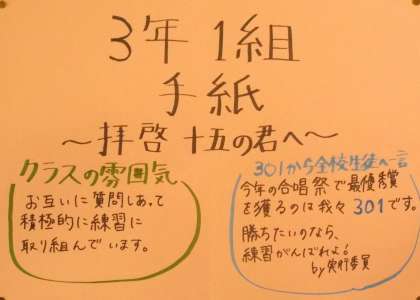 3年1組
手紙
～拝啓 十五の君へ～
クラスの雰囲気
お互いに質問しあって
積極的に練習に
取り組んでいます。
301から全校生徒へ一言
今年の合唱祭で最優秀賞
を獲るのは我々301です。
勝ちたいのなら、
練習がんばれよ！
by実行委員